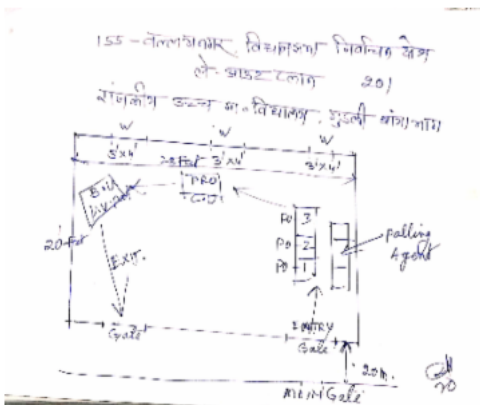 155-वल्लभनगर विधानसभा निर्वाचन क्षेत्र
ले-आउट प्लान 201
राजकीय उच्च मा. विद्यालय, गुडली बांया भाग
W W W
3'x4' 3'x4' 3'x4'
PRO
20 Feet
EXIT.
PO 3
PO 2
PO 1
Polling Agent
Gate
ENTRY
Gate
20m.
MAIN Gate